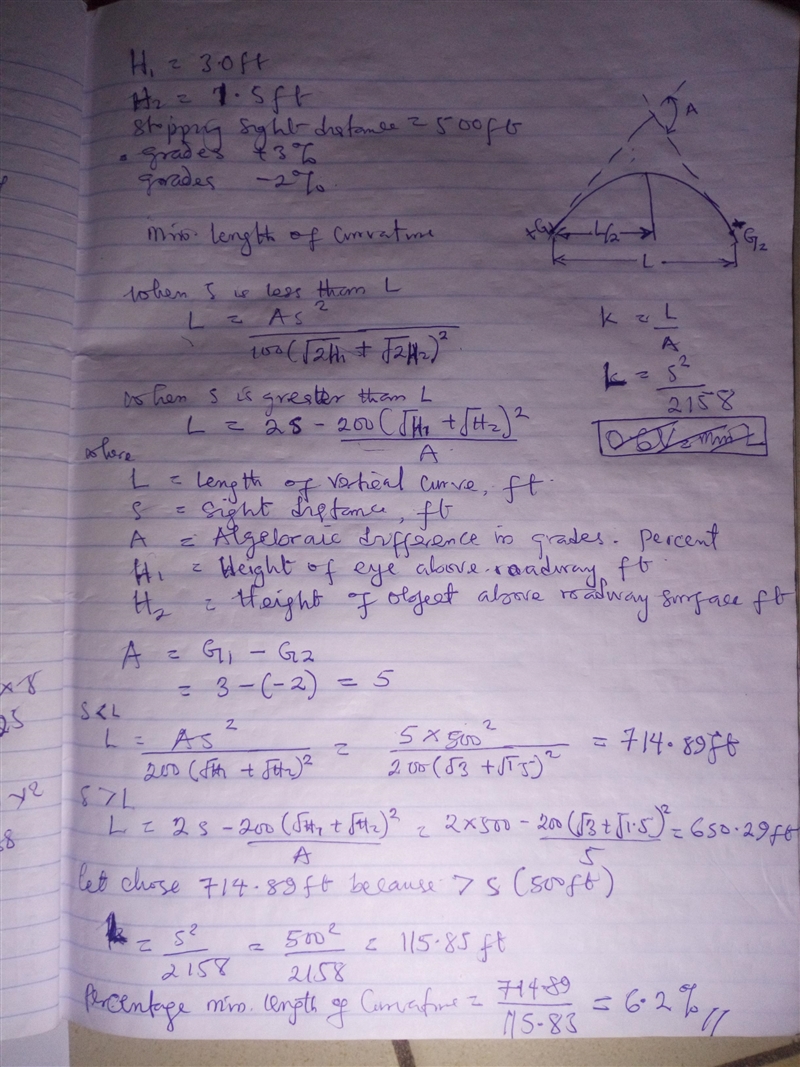 H₁ = 3.0ft
H₂ = 1.5ft
Stopping sight distance = 500ft
grades +3%
grades -2%.
A
+G₁
L/2
G₂
L
min. length of Curvature
When s is less than L
L = AS² / 100(√2H₁ + √2H₂)²
k = L / A
k = s² / 2158
When s is greater than L
L = 2s - 200(√H₁ + √H₂)² / A
where
L = length of vertical curve, ft.
S = Sight distance, ft
A = Algebraic difference in grades. percent
H₁ = Height of eye above roadway ft.
H₂ = Height of object above roadway surface ft
A = G₁ - G₂
= 3 - (-2) = 5
S<L
L = AS² / 200(√H₁ + √H₂)² = 5×500² / 200(√3 + √1.5)² = 714.89ft
S>L
L = 2s - 200(√H₁ + √H₂)² / A = 2×500 - 200(√3 + √1.5)² / 5 = 650.29ft
let chose 714.89ft because > s (500ft)
k = s² / 2158 = 500² / 2158 = 115.85 ft
Percentage min. length of Curvature = 714.89 / 115.83 = 6.2%//
×8
25
×2
8